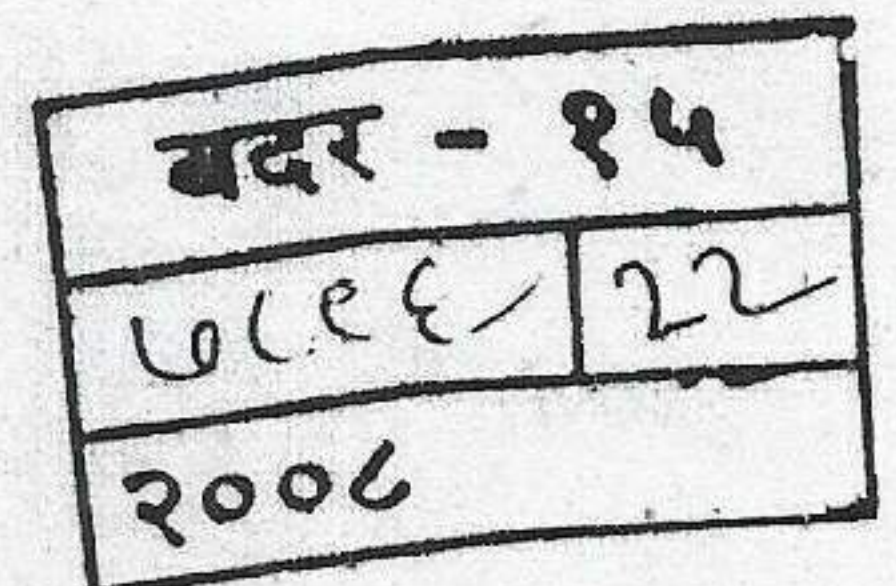 बदर - १५
७८९६ २२
२००८